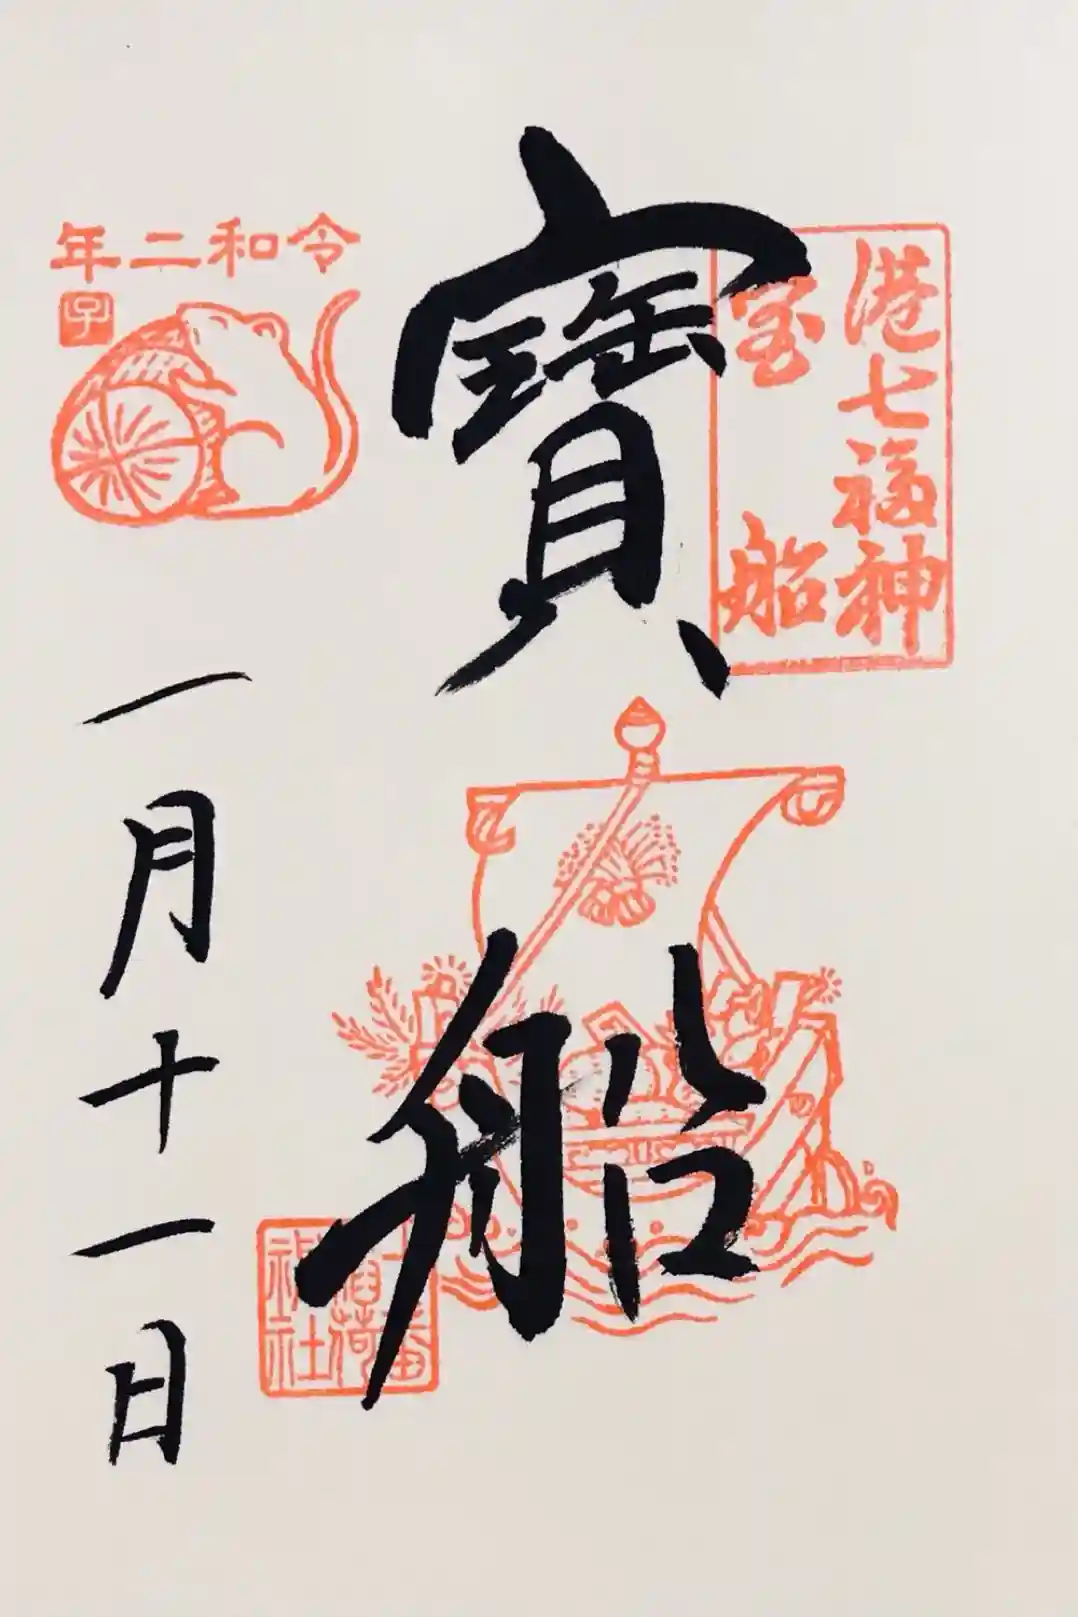 港七福神
宝船
寶船
令和二年
子
一月十一日
十番
稲荷
神社